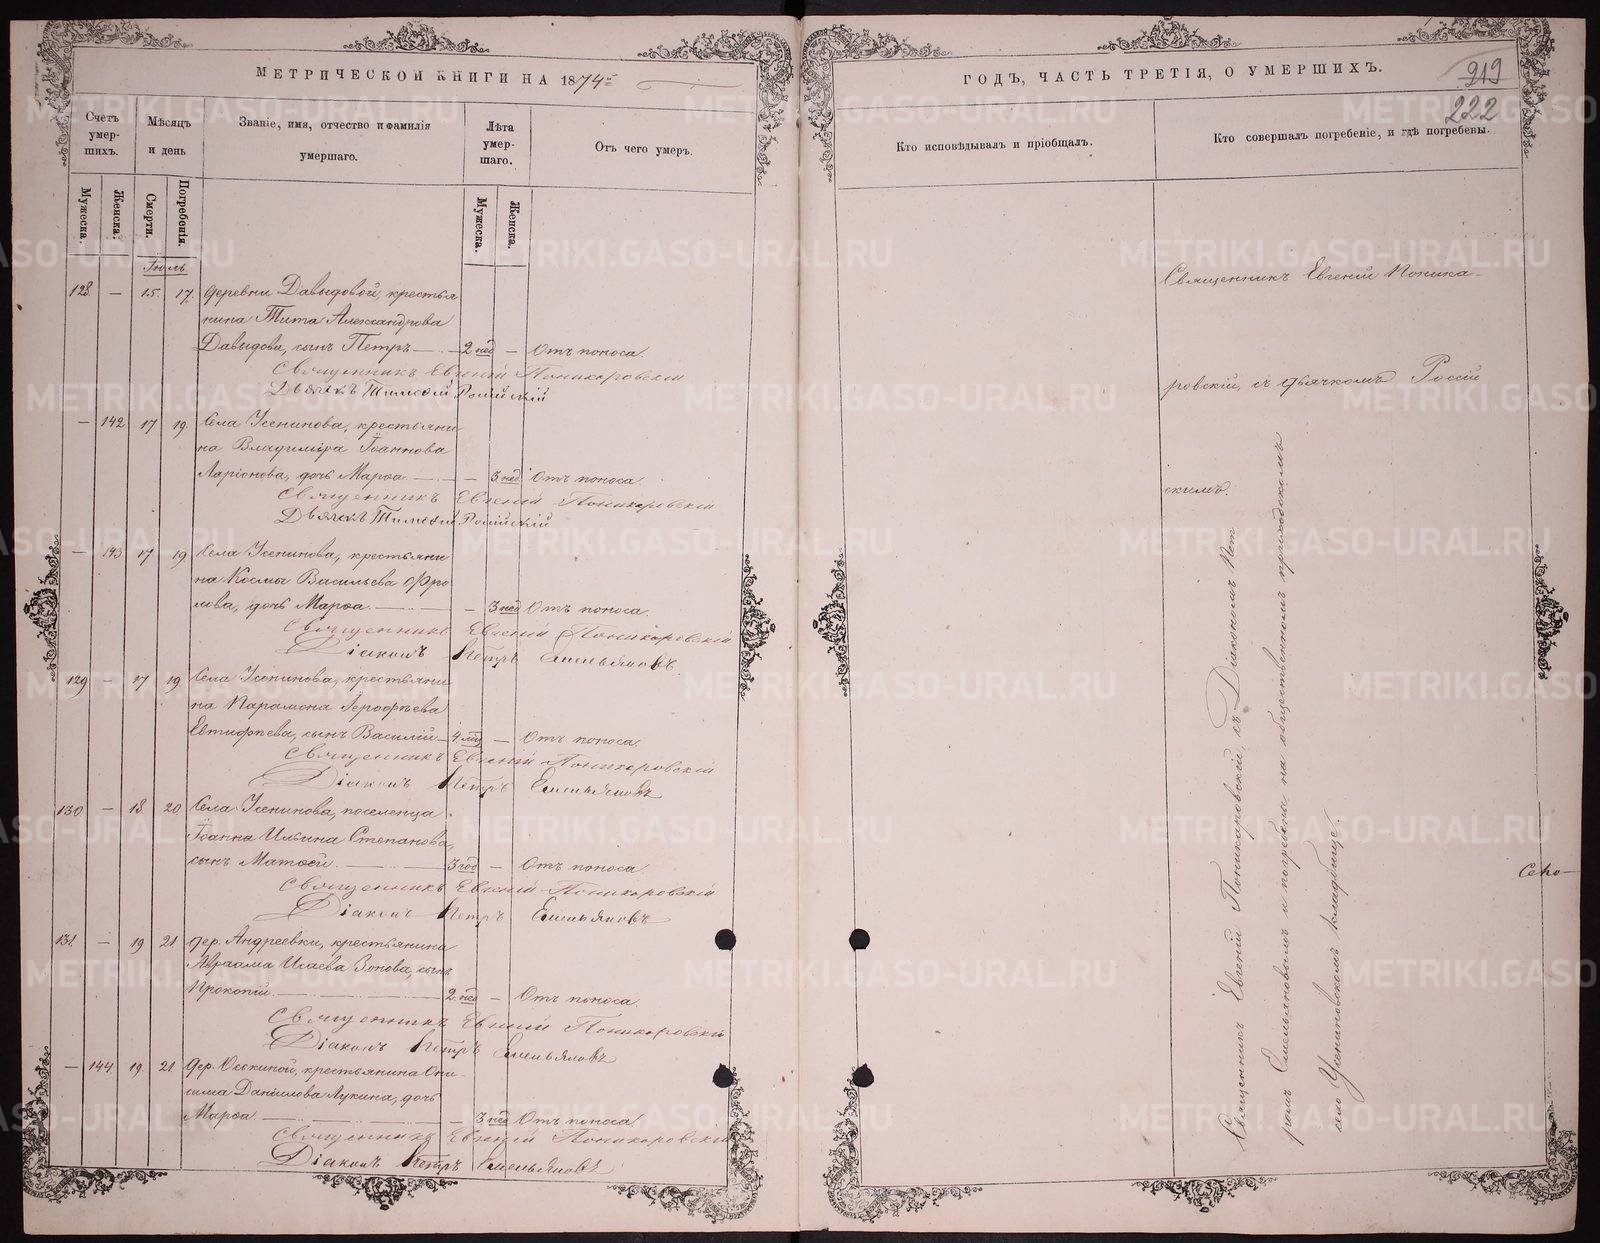 МЕТРИЧЕСКОЙ КНИГИ НА 1874
Счетъ умер-шихъ.
Мѣсяцъ и день
Званіе, имя, отчество и фамилія умершаго.
Лѣта умер-шаго.
Отъ чего умеръ.
Мужеска. Женска. Смерти. Погребенія. Мужеска. Женска.
Іюль
128. — 15. 17. Деревни Давыдовой, крестья-
нина Тита Александрова
Давыдова, сынъ Петръ — 2 нед — Отъ поноса.
Священникъ Евгеній Поникаровскій
Дьячекъ Тимоѳей Россійскій
— 142 17 19 Села Усенинова, крестьяни-
на Владиміра Іоаннова
Ларіонова, дочь Марѳа — — 3 нед Отъ поноса
Священникъ Евгеній Поникаровскій
Дьячекъ Тимоѳей Россійскій
— 143 17 19 Села Усенинова, крестьяни
на Космы Васильева Фро
лова, дочь Марѳа — — 3 нед Отъ поноса.
Священникъ Евгеній Поникаровскій
Діаконъ Петръ Емельяновъ
129 — 17 19 Села Усенинова, крестьяни
на Парамона Ерофѣева
Евтифѣева, сынъ Василій — — Отъ поноса.
Священникъ Евгеній Поникаровскій
Діаконъ Петръ Емельяновъ
130 — 18 20 Села Усенинова, поселенца
Іоанна Ильина Степанова,
сынъ Матѳей. — 3 год — Отъ поноса
Священникъ Евгеній Поникаровскій
Діаконъ Петръ Емельяновъ
131. — 19 21 Дер. Андреевки, крестьянина
Авраама Исаева Зонова, сынъ
Прокопій. — 2 нед — Отъ поноса.
Священникъ Евгеній Поникаровскій
Діаконъ Петръ Емельяновъ
— 144. 19. 21 Дер. Оськиной, крестьянина Они-
сима Даніилова Лукина, дочь
Марѳа — — 3 нед Отъ поноса.
Священникъ Евгеній Поникаровскій
Діаконъ Петръ Емельяновъ
ГОДЪ, ЧАСТЬ ТРЕТІЯ, О УМЕРШИХЪ.
219
222
Кто исповѣдывалъ и пріобщалъ.
Кто совершалъ погребеніе, и гдѣ погребены.
Священникъ Евгеній Поника-
ровскій, съ дьячкомъ Россій
скимъ.
Священникъ Евгеній Поникаровскій, съ Діакономъ Пет
ромъ Емельяновымъ и погребены на общественномъ приходскомъ
село Усениновскомъ кладбище.
METRIKI.GASO-URAL.RU